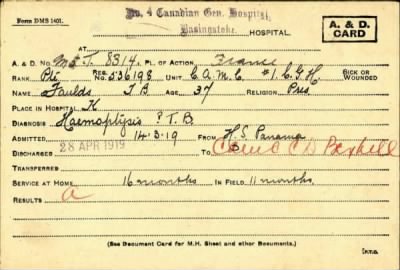 Form DMS 1401.
No. 4 Canadian Gen. Hospital,
Basingstoke.
A. & D. CARD
AT HOSPITAL.
A. & D. No. T. 8314. PL. OF ACTION France
RANK Pte REG. NO. 536198 UNIT C.A.M.C. #1. C.G.H. SICK OR WOUNDED
NAME Faulds J B. AGE 37 RELIGION Pres
PLACE IN HOSPITAL K
DIAGNOSIS Haemoptysis ? T.B.
ADMITTED 14-3-19 FROM H.S. Panama
DISCHARGED 28 APR 1919 TO C D Bexhill
TRANSFERRED
SERVICE AT HOME 16 months IN FIELD 11 months.
RESULTS a
(See Document Card for M.H. Sheet and other Documents.)
[P.T.O.